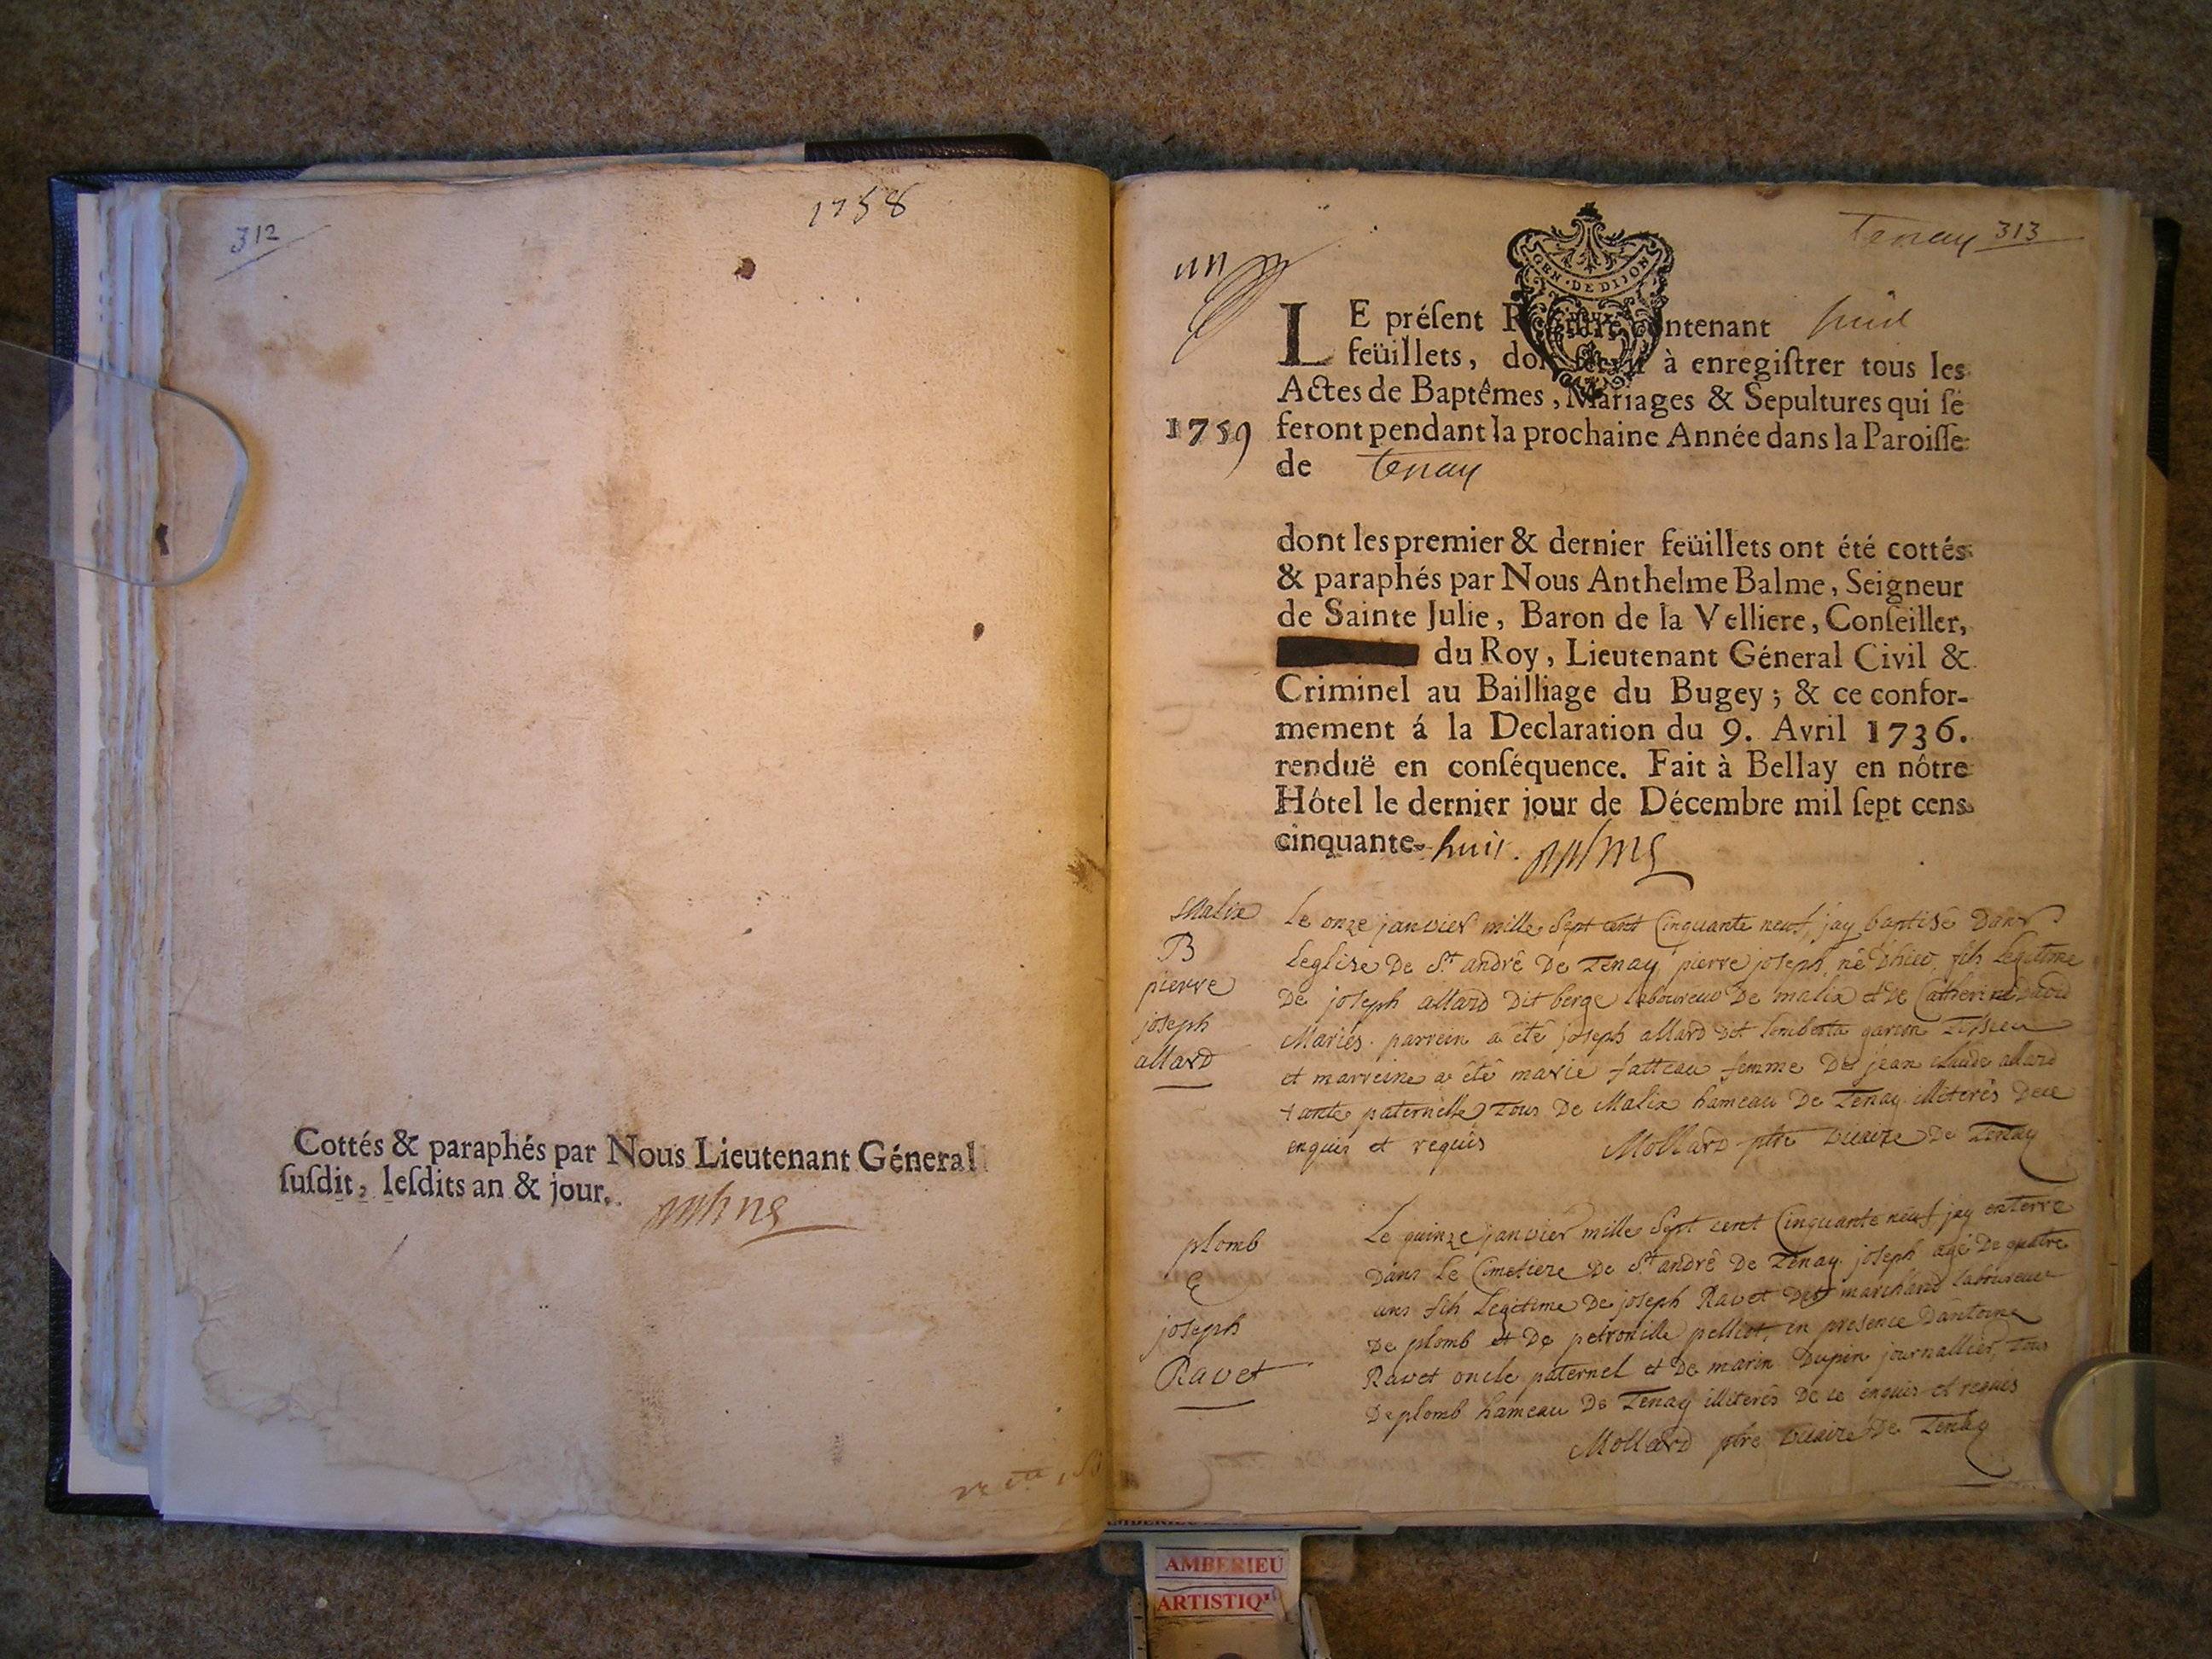 312
1758
Cottés & paraphés par Nous Lieutenant Géneral
ſuſdit, leſdits an & jour.
Tenay 313
un
GEN · DE DIJON
LE préſent Regiſtre contenant huit
feüillets, doit ſervir à enregiſtrer tous les
Actes de Baptêmes, Mariages & Sepultures qui ſe
1759 feront pendant la prochaine Année dans la Paroiſſe
de Tenay
dont les premier & dernier feüillets ont été cottés
& paraphés par Nous Anthelme Balme, Seigneur
de Sainte Julie, Baron de la Velliere, Conſeiller,
du Roy, Lieutenant Géneral Civil &
Criminel au Bailliage du Bugey; & ce confor-
mement á la Declaration du 9. Avril 1736.
renduë en conſéquence. Fait à Bellay en nôtre
Hôtel le dernier jour de Décembre mil ſept cens
cinquante-huit.
Malix
B
pierre
joseph
allard
Le onze janvier mille Sept cent Cinquante neuf, jay baptisé Dans
Leglise De St. andré De Tenay pierre joseph, né D'hier, fils Legitime
De joseph allard Dit berge laboureur De malix et De Catherine
Mariés. parrein a été joseph allard dit garcon Tissieu
et marreine a été marie fatteau femme De jean claude allard
tante paternelle, Tous De Malix hameau De Tenay illiterés De ce
enquis et requis Mollard ptre vicaire De Tenay
plomb
E
joseph
Ravet
Le quinze janvier mille Sept cent Cinquante neuf jay enterré
Dans Le Cimetiere De St. andré De Tenay joseph agé De quatre
ans fils Legitime De joseph Ravet Dit marchand laboureur
De plomb et De petronille pelliot, en presence Dantoine
Ravet oncle paternel et De marin Dupin journallier, Tous
De plomb hameau De Tenay illiterés De ce enquis et requis
Mollard ptre vicaire De Tenay
AMBERIEU
ARTISTIQ